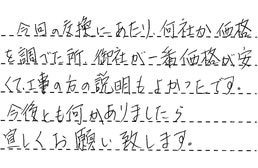 今回の交換にあたり、何社か価格
を調べた所、御社が一番価格が安
くて工事の方の説明もよかったです。
今後とも何かありましたら
宜しくお願い致します。